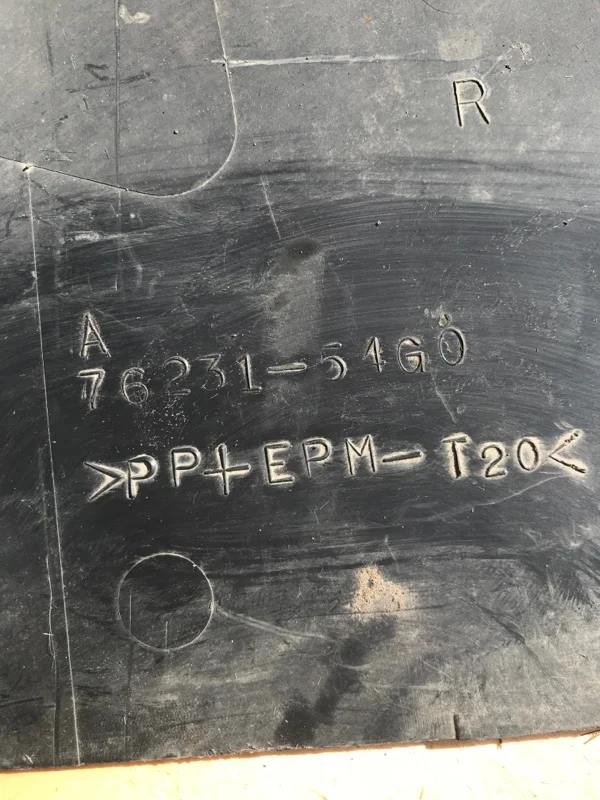 R
A
76231-54G0
>PP+EPM-T20<